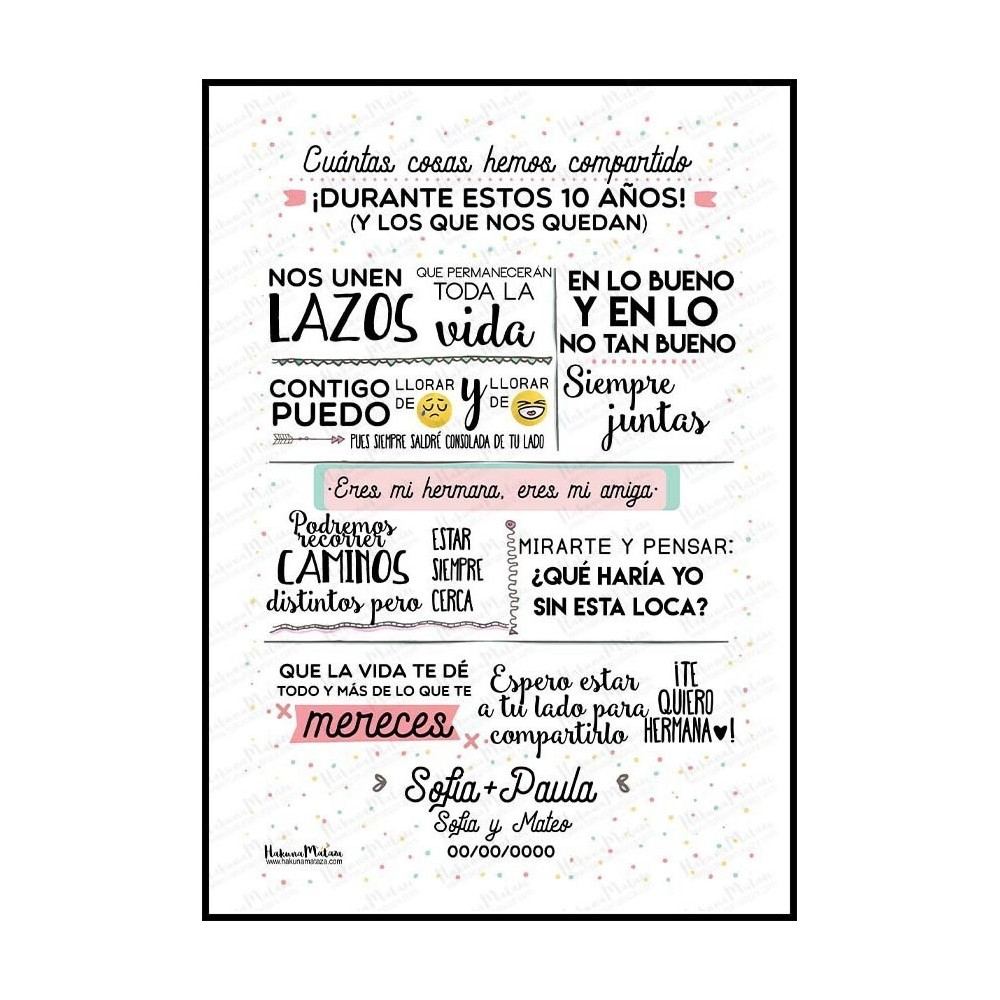 Cuántas cosas hemos compartido
¡DURANTE ESTOS 10 AÑOS!
(Y LOS QUE NOS QUEDAN)
NOS UNEN
LAZOS
QUE PERMANECERÁN
TODA LA
vida
EN LO BUENO
Y EN LO
NO TAN BUENO
Siempre
juntas
CONTIGO
PUEDO
LLORAR
DE
y
LLORAR
DE
PUES SIEMPRE SALDRÉ CONSOLADA DE TU LADO
·Eres mi hermana, eres mi amiga·
Podremos
recorrer
CAMINOS
distintos pero
ESTAR
SIEMPRE
CERCA
MIRARTE Y PENSAR:
¿QUÉ HARÍA YO
SIN ESTA LOCA?
QUE LA VIDA TE DÉ
TODO Y MÁS DE LO QUE TE
mereces
Espero estar
a tu lado para
compartirlo
¡TE
QUIERO
HERMANA♥!
Sofia+Paula
Sofia y Mateo
00/00/0000
HakunaMataza
www.hakunamataza.com